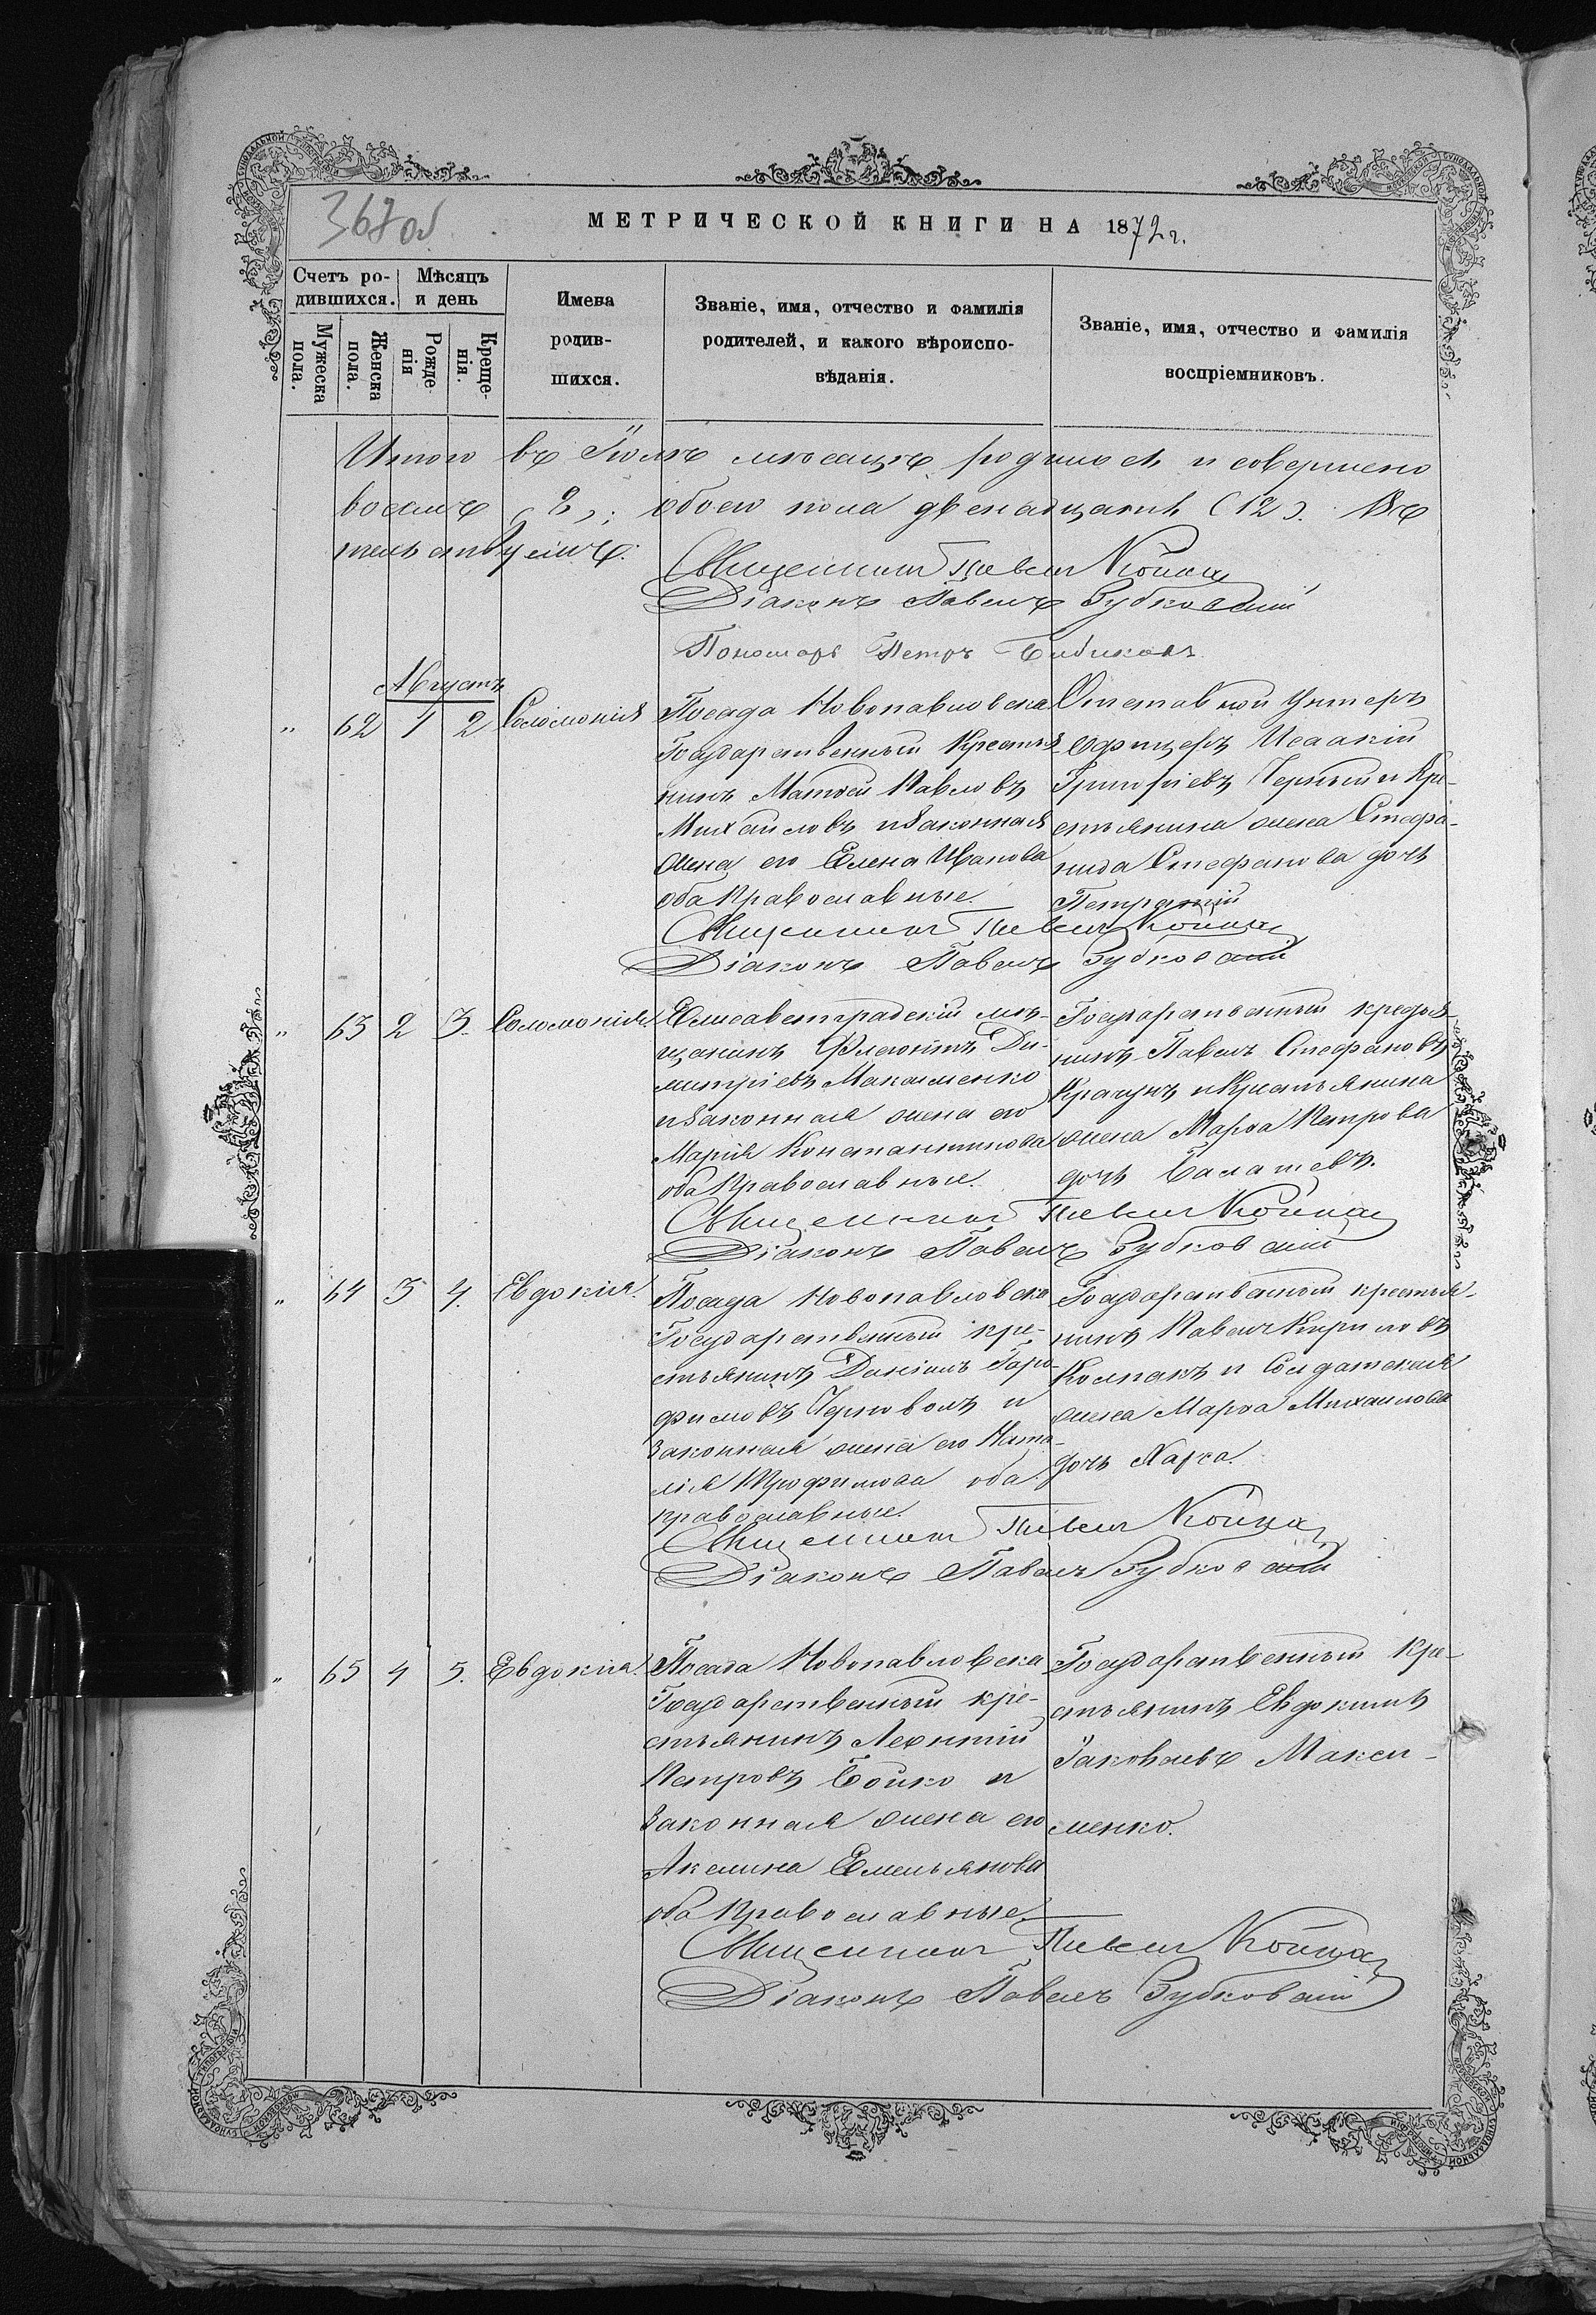 367 об
МЕТРИЧЕСКОЙ КНИГИ НА 1872 г.
Счетъ ро-
дившихся.
Мѣсяцъ
и день
Мужеска
пола.
Женска
пола.
Рожде-
нія
Креще-
нія.
Имена
родив-
шихся.
Званіе, имя, отчество и фамилія
родителей, и какого вѣроиспо-
вѣданія.
Званіе, имя, отчество и фамилія
воспріемниковъ.
Итого въ Іюлѣ мѣсяцѣ родилось
обоего пола двенадцать (12).
Священникъ Павелъ
Діаконъ Павелъ Зубковскій
Пономарь Петръ Бибиковъ
Августъ
" 62 1 2 Соломонія
Посада Новопавловска
Государственный Крестья
нинъ Матѳей Павловъ
Михайловъ и Законная
жена его Елена Иванова
оба Православные.
Отставной Унтеръ
офицеръ Исаакій
Григоріевъ Черный и Кре-
стьянина жена Стефа-
нида Стефанова дочь
Священникъ Павелъ
Діаконъ Павелъ Зубковскій
" 63 2 3. Соломонія
Елисаветградскій мѣ-
щанинъ Ди-
митріевъ Макаменко
и Законная жена его
Марія Константинова
оба Православные.
Государственный
нинъ Павелъ Стефановъ
Крачунъ и Крестьянина
жена Марѳа Петрова
дочь
Священникъ Павелъ
Діаконъ Павелъ Зубковскій
" 64 3 4. Евдокія.
Посада Новопавловска
Государственный кре-
стьянинъ Даніилъ
и
Законная жена его Ната-
лія Трофимова оба
православные.
Государственный крестья-
нинъ Павелъ Кириловъ
Колпакъ и Солдатская
жена Марѳа Михаилова
дочь
Священникъ Павелъ
Діаконъ Павелъ Зубковскій
" 65 4 5. Евдокія.
Посада Новопавловска
Государственный кре-
стьянинъ Леонтій
Петровъ Бойко и
Законная жена его
Акелина Емельянова
оба Православные
Государственный Кре-
стьянинъ Евдокимъ
Іаковлевъ Макси-
менко.
Священникъ Павелъ
Діаконъ Павелъ Зубковскій